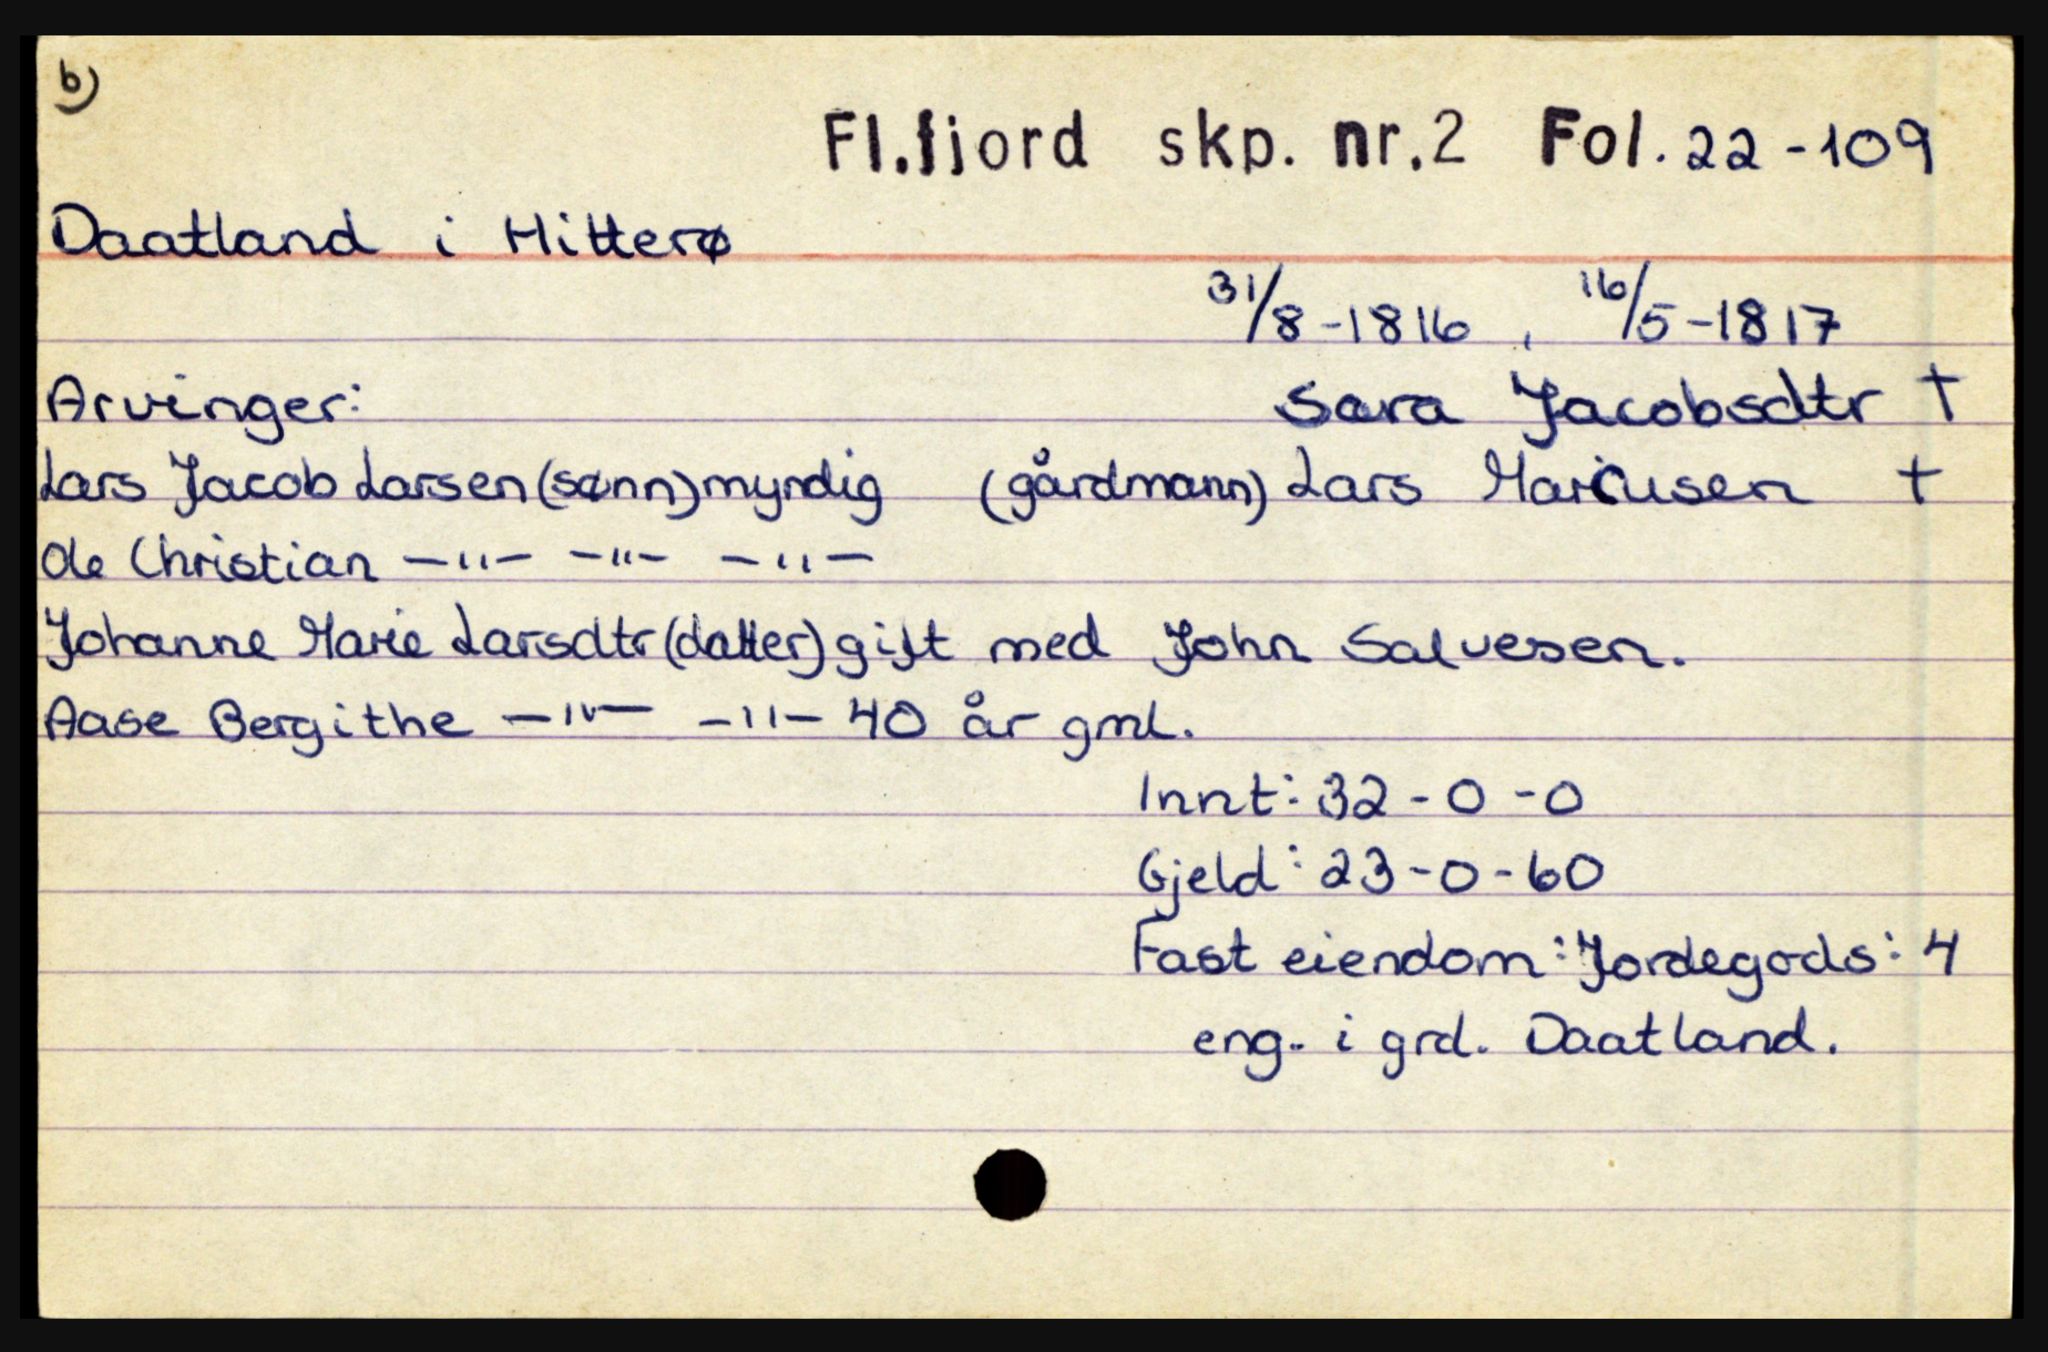 b)
Fl.fjord skp. nr.2 Fol. 22-109
Daatland i Hitterø
31/8-1816, 16/5-1817
Arvinger: Sara Jacobsdtr †
Lars Jacob Larsen (sønn) myndig (gårdmann) Lars Mariusen †
Ole Christian —"— —"— —"—
Johanne Marie Larsdtr (datter) gift med John Salvesen.
Aase Bergithe —"— —"— 40 år gml.
Innt: 32-0-0
Gjeld: 23-0-60
Fast eiendom: Jordegods: 4
eng. i grd. Daatland.